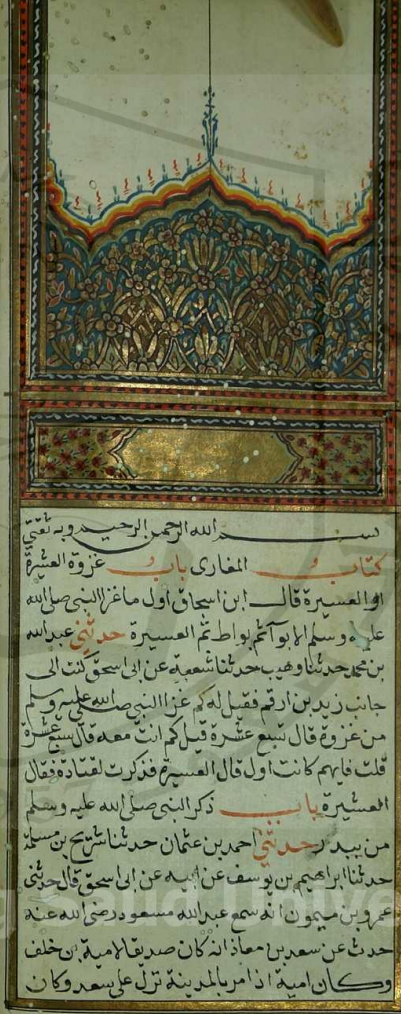 بسم الله الرحمن الرحيم وبه ثقتي
كتاب المغازى باب غزوة العشيرة
او العسيرة قال ابن اسحاق اول ما غزا النبي صلى الله
عليه وسلم الابوآ ثم بواط ثم العسيرة حدثني عبد الله
بن محمد حدثنا وهيب حدثنا شعبة عن ابى اسحق كنت الى
جانب زيد بن ارقم فقيل له كم غزا النبي صلى الله عليه وسلم
من غزوة قال تسع عشرة قيل كم انت معه قال سبع عشرة
قلت فايهم كانت اول قال العسيرة فذكرت لقتادة فقال
العشيرة باب ذكر النبي صلى الله عليه وسلم
من ببدر حدثني احمد بن عثمان حدثنا شريح بن مسلمة
حدثنا ابراهيم بن يوسف عن ابيه عن ابى اسحق قال حدثنى
عمرو بن ميمون انه سمع عبد الله مسعود رضى الله عنه
حدث عن سعد بن معاذ انه كان صديقا لامية بن خلف
وكان امية اذا مر بالمدينة نزل على سعد وكان
Saud Unive